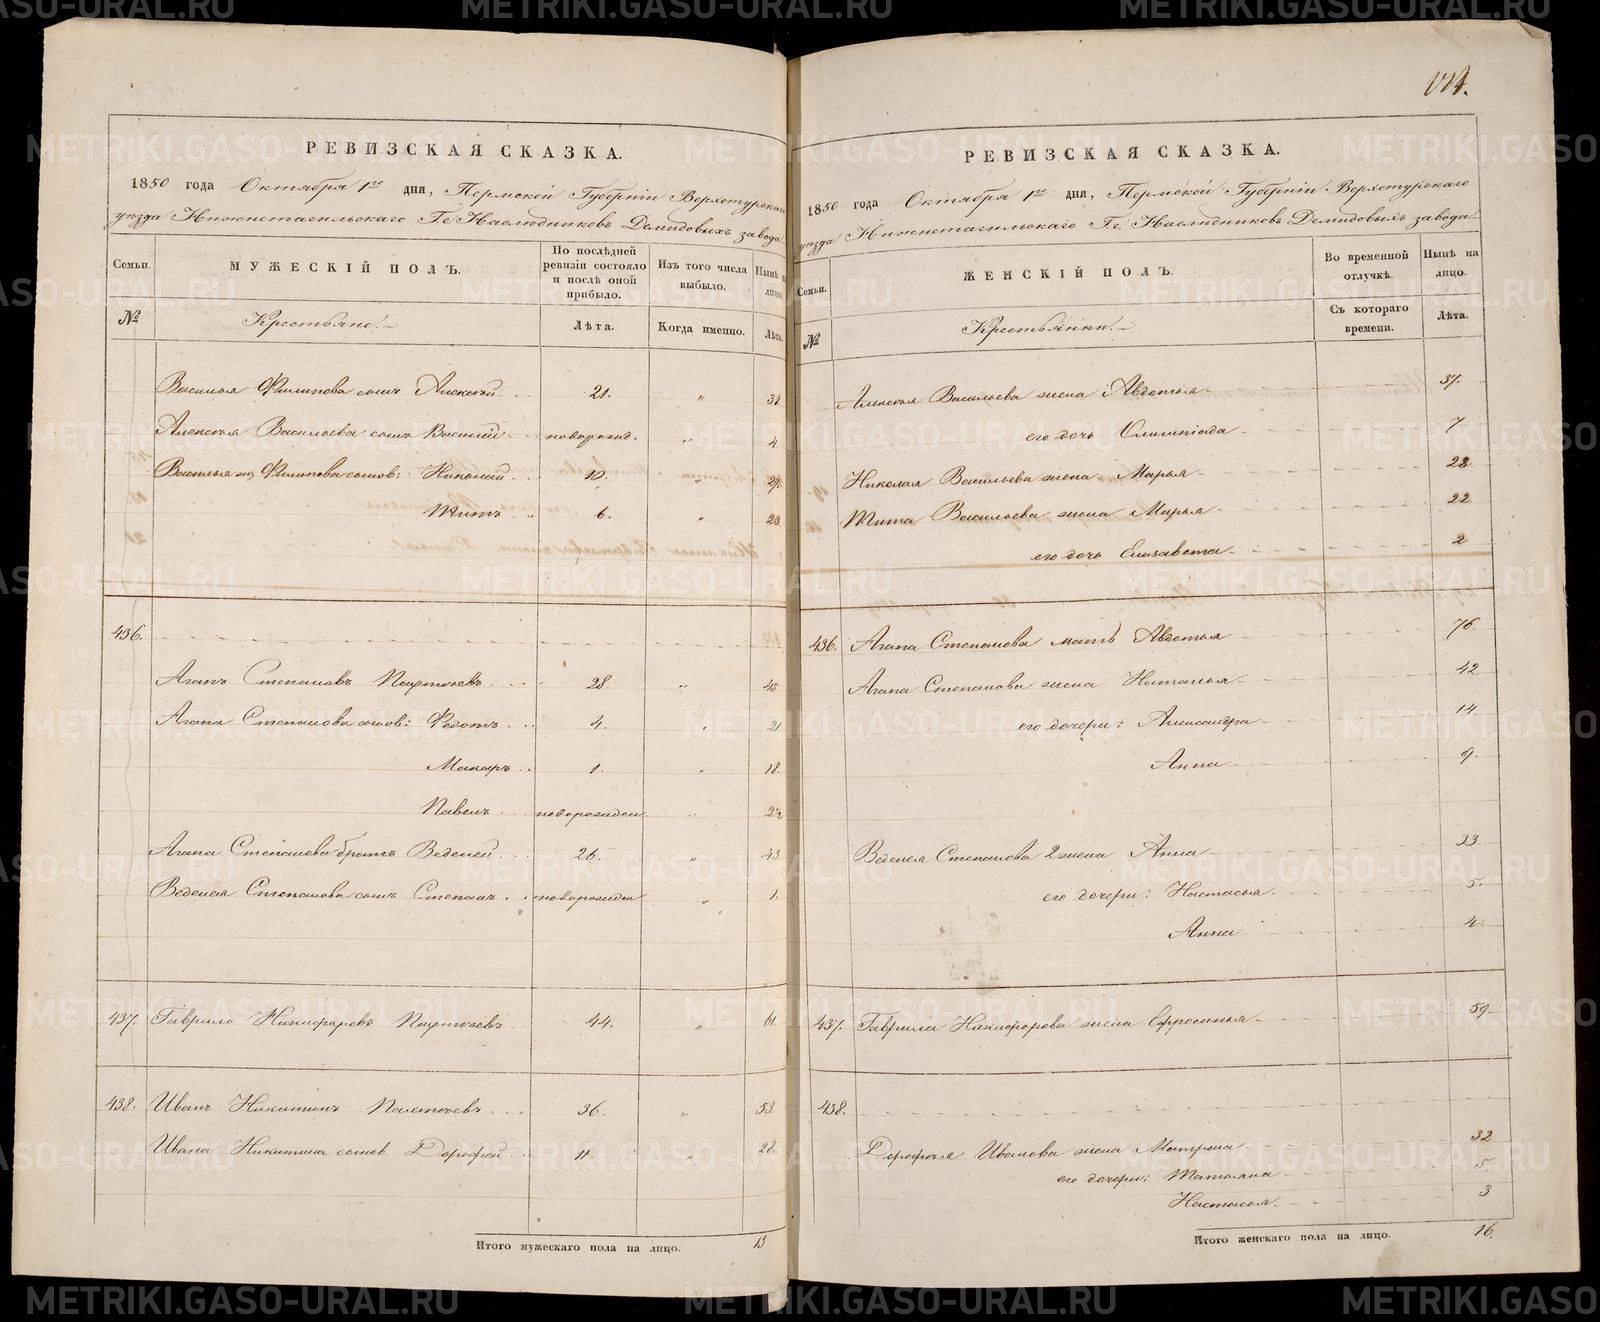 РЕВИЗСКАЯ СКАЗКА.
1850 года Октября 1го дня, Пермской Губерніи Верхотурскаго
уезда Нижнетагильскаго Гг. Наследниковъ Демидовыхъ завода
Семьи.
МУЖЕСКІЙ ПОЛЪ.
По послѣдней ревизіи состояло и послѣ оной прибыло.
Изъ того числа выбыло.
Нынѣ на лицо.
№
Крестьяне.
Лѣта.
Когда именно.
Лѣта.
Василья Филипова сынъ Алексѣй 21. "
Алексѣя Васильева сынъ Василій новорожд. " 4.
Василья Филипова сынов: Николай 10. "
Титъ 6. " 23
436.
Агапъ Степановъ 28. " 45
Агапа Степанова сынов: Федотъ 4. " 21
Макаръ 1. " 18.
Павелъ новорожден. "
Агапа Степанова братъ Веденей 26. " 43
Веденея Степанова сынъ Степанъ новорожден " 1.
437. Гаврило Никифоровъ 44. " 61
438. Иванъ Никитинъ 36. " 53
Ивана Никитина сынов. Дорофей 11. " 28
Итого мужескаго пола на лицо. 13
РЕВИЗСКАЯ СКАЗКА.
1850 года Октября 1го дня, Пермской Губерніи Верхотурскаго
уезда Нижнетагильскаго Гг. Наследниковъ Демидовыхъ завода
Семьи.
ЖЕНСКІЙ ПОЛЪ.
Во временной отлучкѣ.
Нынѣ на лицо.
№
Крестьянки.
Съ котораго времени.
Лѣта.
Алексѣя Васильева жена Авдотья 37.
его дочь Олимпіада 7
Николая Васильева жена Марья 28
Тита Васильева жена Марья 22
его дочь Елизавета 2
436. Агапа Степанова мать Авдотья 76.
Агапа Степанова жена Наталья 42
его дочери: Александра 14.
Анна 9.
Веденея Степанова 2 жена Анна 33
его дочери: Настасья 5.
Анна 4.
437. Гаврила Никифорова жена Ефросинья 59.
438.
Дорофея Иванова жена Матрена 32
его дочери: Татьяна 5.
Настасья 3
Итого женскаго пола на лицо. 16.
METRIKI.GASO-URAL.RU